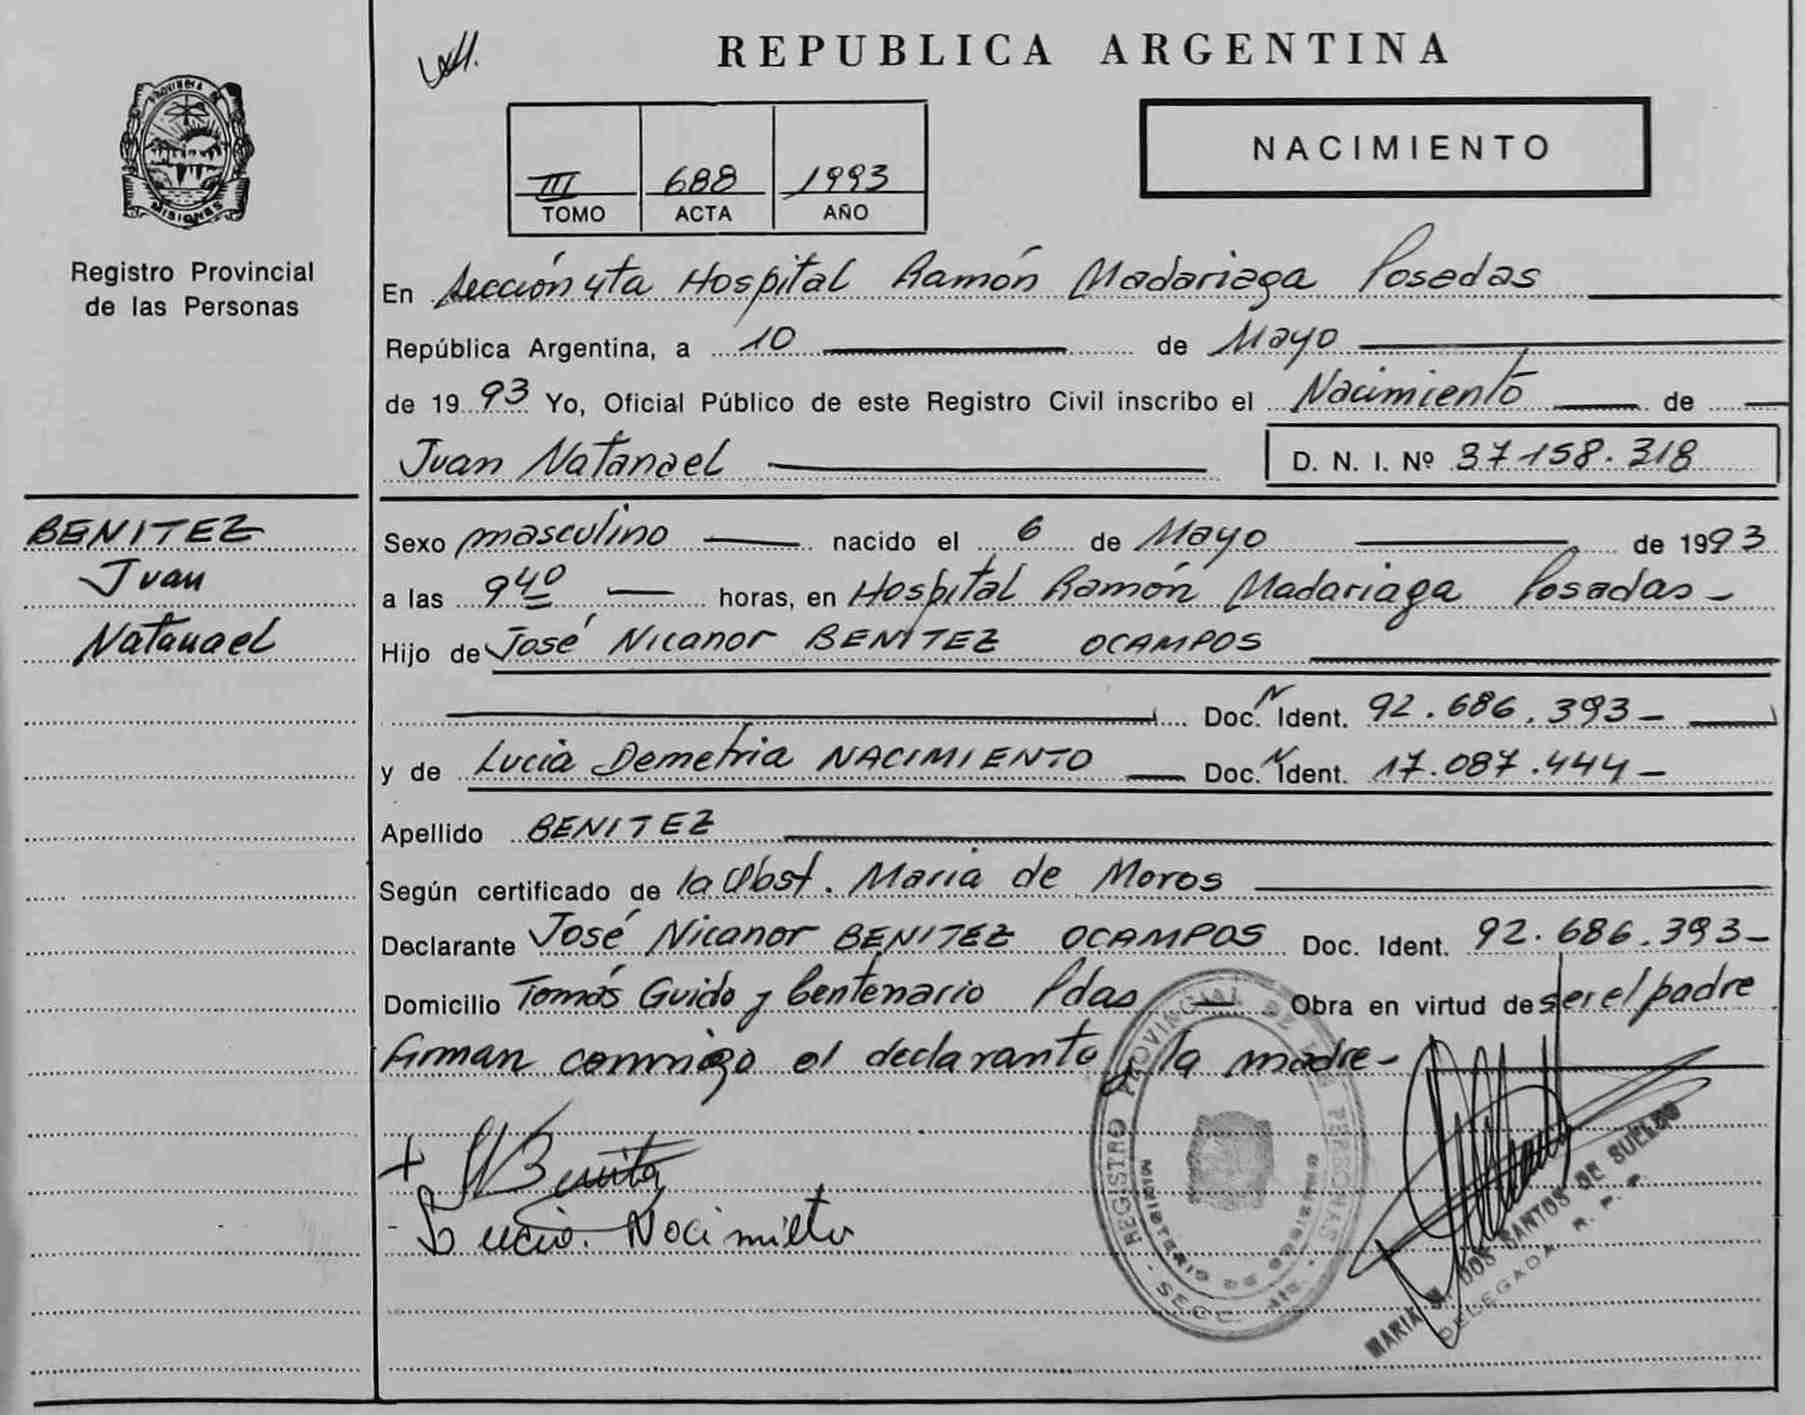 REPUBLICA ARGENTINA
PROVINCIA DE
MISIONES
Registro Provincial
de las Personas
III 688 1993
TOMO ACTA AÑO
NACIMIENTO
En Sección 4ta Hospital Ramón Madariaga Posadas
República Argentina, a 10 de Mayo
de 1993 Yo, Oficial Público de este Registro Civil inscribo el Nacimiento de
Juan Natanael D. N. I. Nº 37.158.318
BENITEZ
Juan
Natanael
Sexo masculino nacido el 6 de Mayo de 1993
a las 9 40 horas, en Hospital Ramón Madariaga Posadas -
Hijo de José Nicanor BENITEZ OCAMPOS
Doc. N Ident. 92.686.393-
y de Lucia Demetria NACIMIENTO Doc. N Ident. 17.087.444-
Apellido BENITEZ
Según certificado de la Obst. Maria de Moros
Declarante José Nicanor BENITEZ OCAMPOS Doc. Ident. 92.686.393-
Domicilio Tomás Guido y Centenario Pdas Obra en virtud de ser el padre
Firman conmigo el declarante y la madre-
+ Benitez
- Lucia. Nocimieto
REGISTRO PROVINCIAL DE LAS PERSONAS
MINISTERIO DE GOBIERNO
- SECC. 4ta -
MARIA DOS SANTOS DE SUELDO
DELEGADA R. P. P.